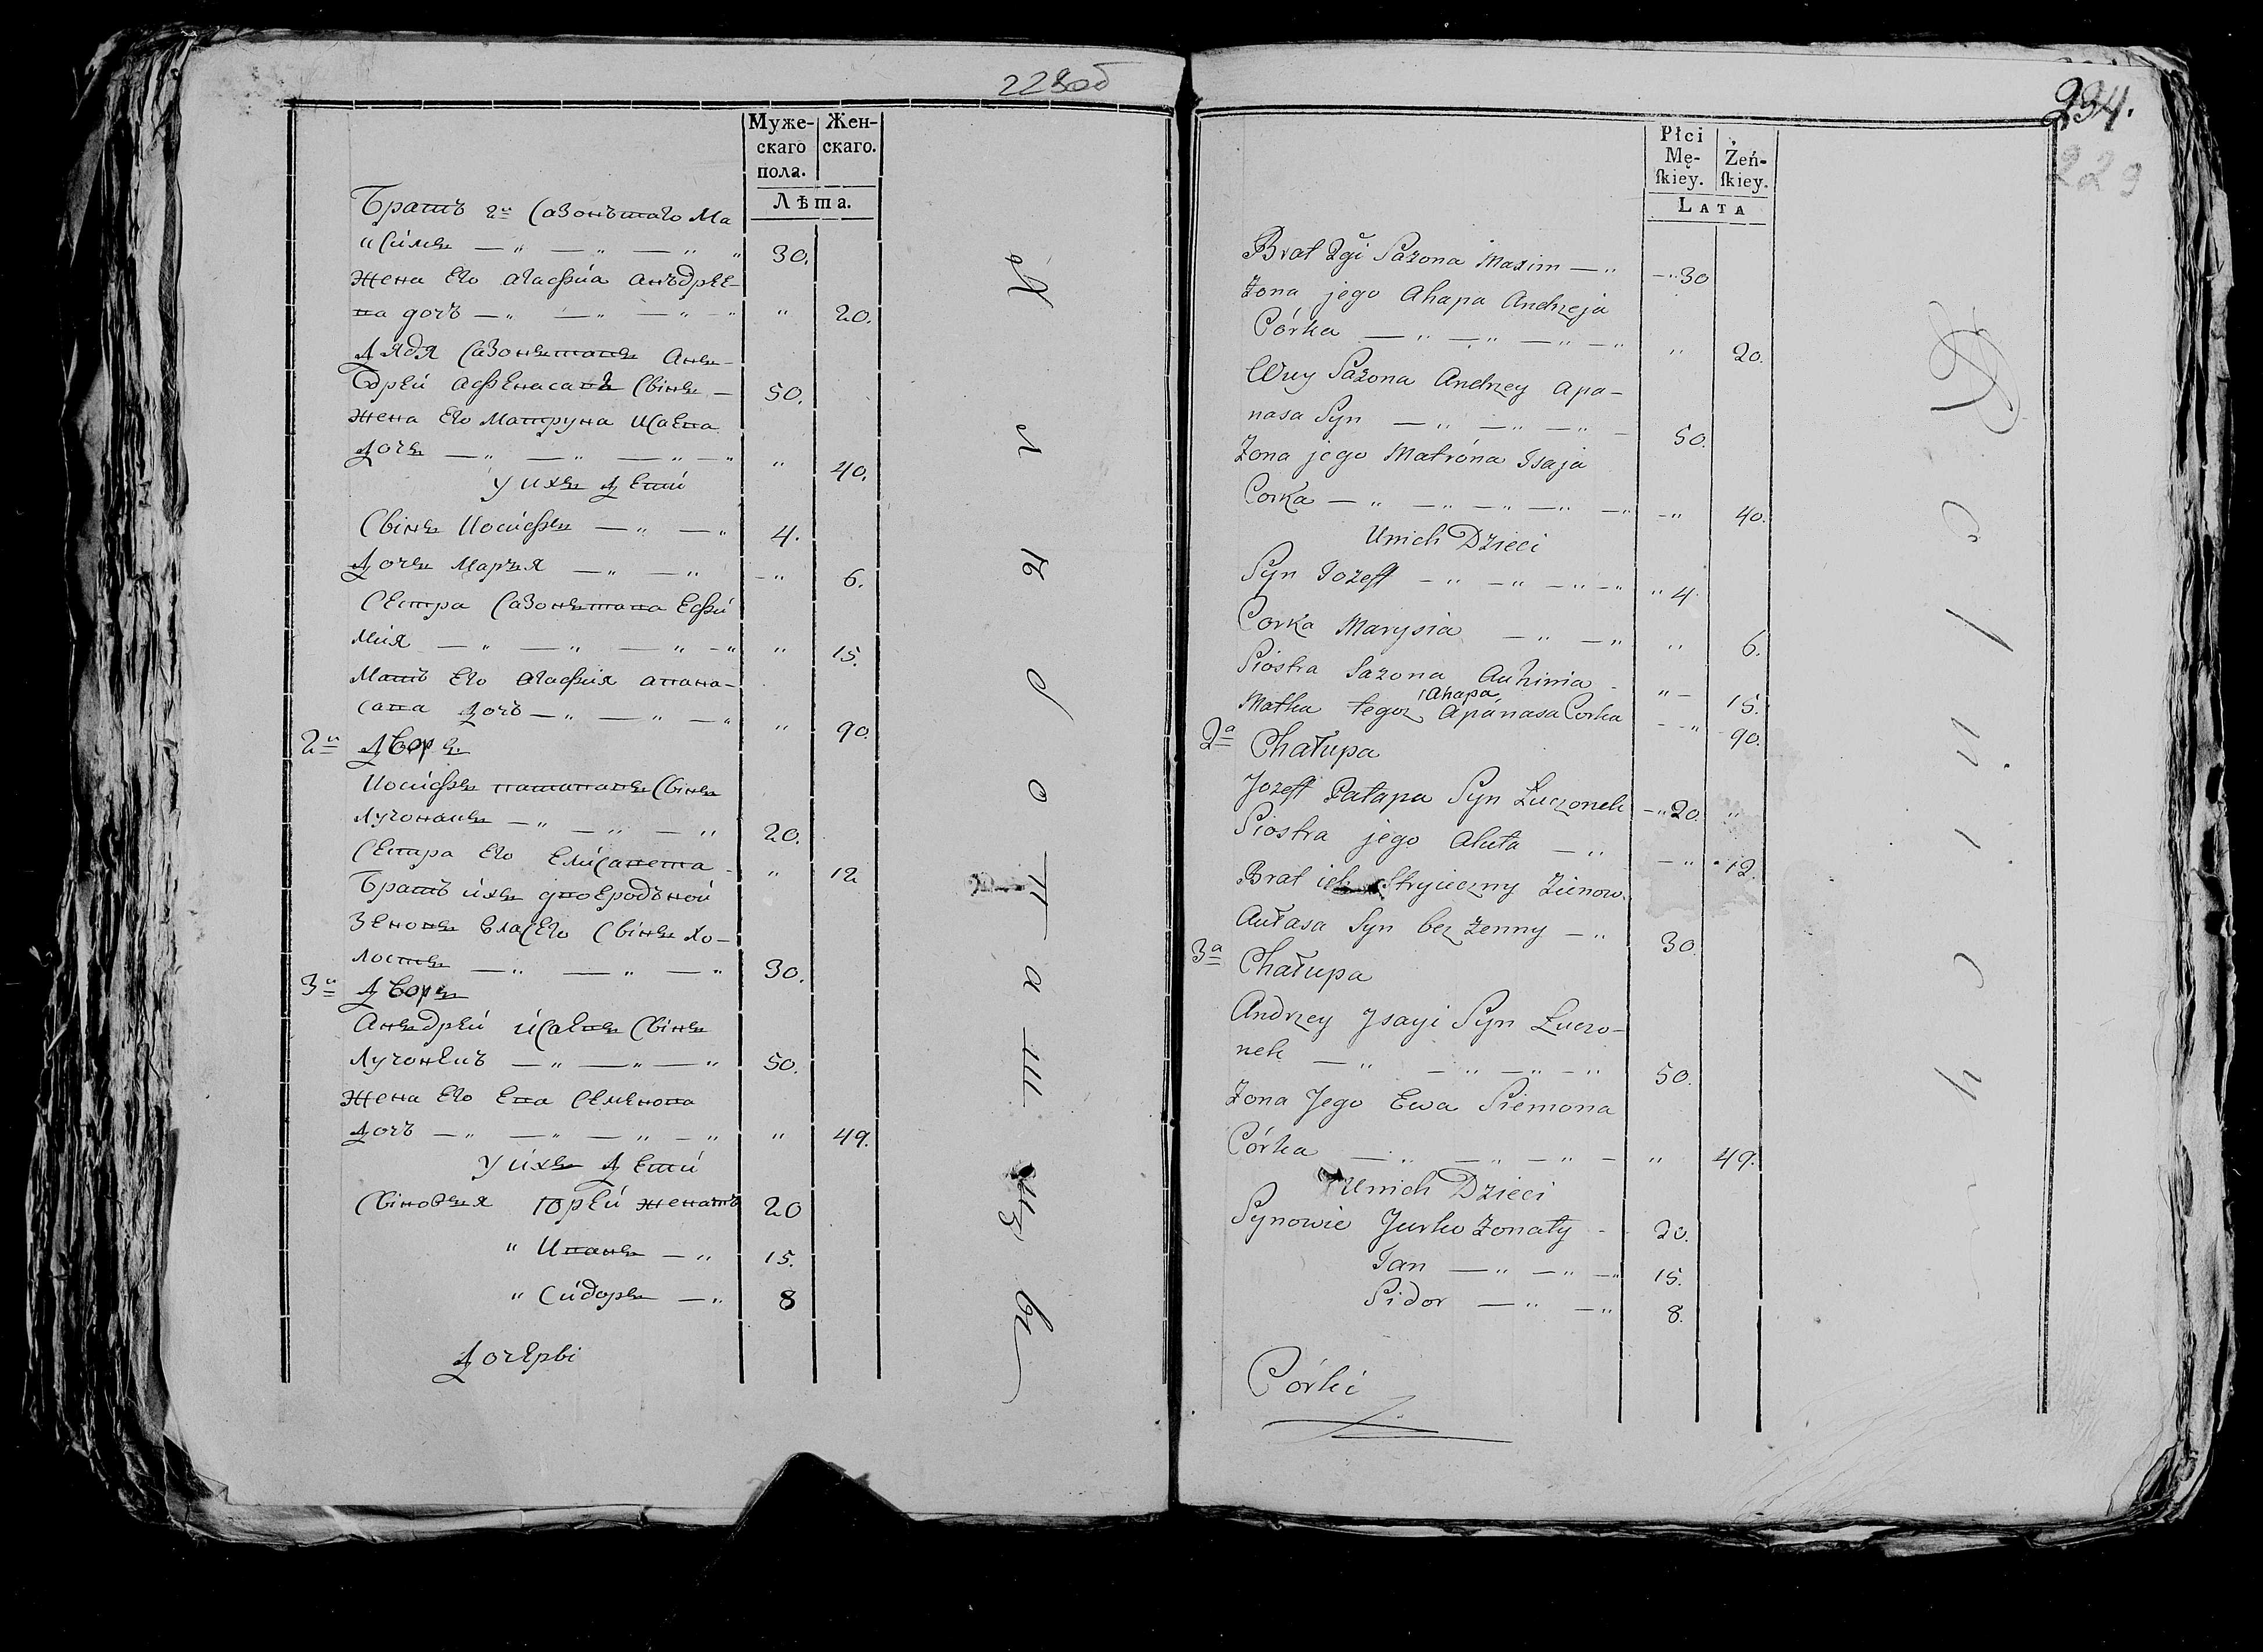 228об
Муже-
скаго
пола.
Жен-
скаго.
Лѣта.
Братъ 2й Сазонътаго Ма
ѯимъ — „ — „ — „ „ 30.
Жена Его Агафиа Анъдрее-
ва дочъ — „ — „ — „ — „ „ 20.
Дядя Сазонътавъ Анъ-
дрей Афенасавъ Свінъ — 50.
Жена Его Матруна Исаева
Дочъ — „ — „ — „ — „ „ 40.
У ихъ Дети
Свінъ Иосифъ — „ — „ 4.
Дочъ Маръя — „ — „ — „ 6.
Сестра Сазонътава Ефи
мия — „ — „ — „ — „ „ 15.
Матъ Его Агафия Апана-
сава Дочъ — „ — „ — „ „ 90.
2й Дворъ
Иосифъ паташавъ Свінъ
Лучонакъ — „ — „ — „ 20.
Сестра Его Елисавета - „ 12
Братъ ихъ двоеродъной
Зеновъ Власего Свінъ хо-
лостъ — „ — „ — „ 30.
3й Дворъ
Анъдрей Исаевъ Свінъ
Лучонекъ — „ — „ — „ 50.
Жена Его Ева Семенова
Дочъ — „ — „ — „ — „ „ 49.
У ихъ Дети
Свіновъя Юрей женатъ 20
„ Иванъ — „ 15.
„ Сидоръ — „ 8
Дочерві
234.
229
Płci
Mę-
ſkiey.
Żeń-
ſkiey.
LATA
Brat 2gi Sazona Maxim — „ — „ 30
Zona jego Ahapa Andrzeja
Córka — „ — „ — „ — „ „ 20.
Wuy Sazona Andrzey Apa-
nasa Syn — „ — „ — „ — 50.
Zona jego Matróna Isaja
Corka — „ — „ — „ — „ — „ — „ 40.
Unich Dzieci
Syn Jozeff — „ — „ — „ — „ „ 4.
Corka Marysia — „ — „ „ 6.
Siostra Sazona Auhimia - „ — 15.
Ahapa
Matka tegoż Apánasa Corka - - „ 90.
2a Chałupa
Jozeff Patapa Syn Łuczonek — „ 20. „
Siostra jego Aluta — „ — „ „ 12.
Brat ich Stryieczny Zienow.
Aułasa Syn bez Zenny — „ 30.
3a Chałupa
Andrzey Jsayi Syn Łuczo-
nek — „ — „ — „ — „ 50.
Zona Jego Ewa Siemona
Córka — „ — „ — „ — „ 49.
Unich Dzieci
Synowie Jurko Zonaty - 20.
Jan — „ — „ — „ 15.
Sidor — „ — „ 8.
Córki